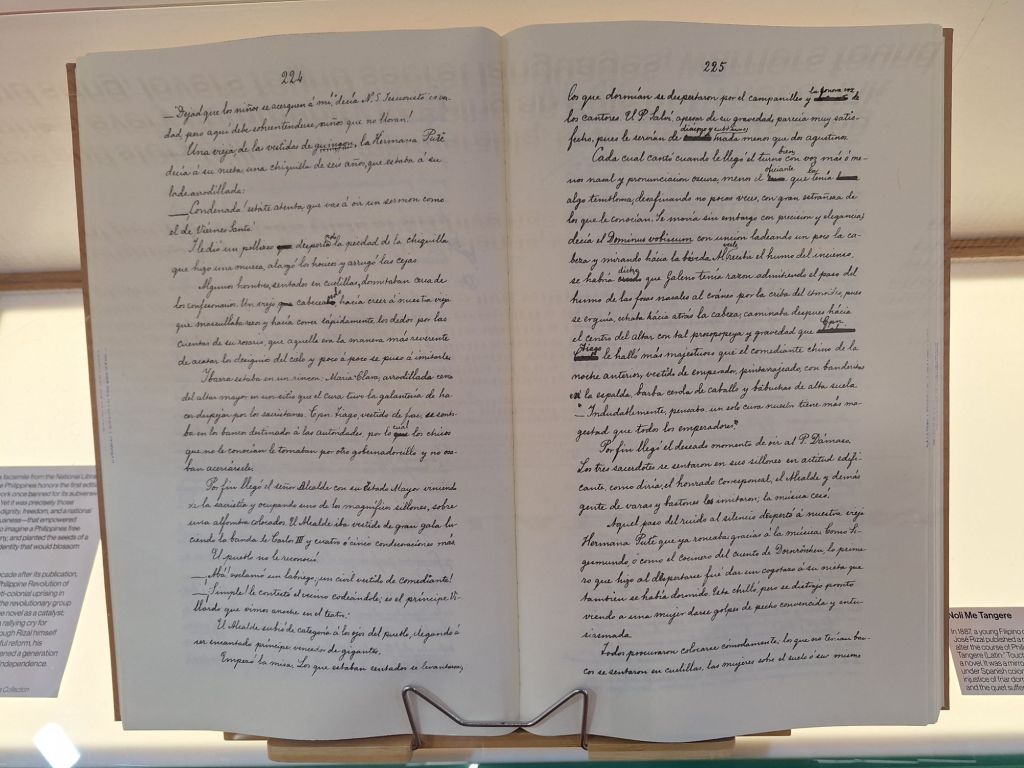 224
—"Dejad que los niños se acerquen á mí," decía N. S. Jesucristo es ver-
dad, pero aquí debe sobreentenderse, niños que no lloran!
Una vieja, de las vestidas de guingon, la Hermana Putê
decía á su nieta, una chiquilla de seis años, que estaba á su
lado arrodillada:
—¡Condenada! estáte atenta, que vas á oir un sermon como
el de Viernes Santo!
Y le dió un pellizco despertando la piedad de la chiquilla
que hizo una mueca, alargó los hocicos y arrugó las cejas.
Algunos hombres, sentados en cuclillas, dormitaban cerca de
los confesonarios. Un viejo cabeceando hacía creer á nuestra vieja
que mascullaba rezos y hacía correr rápidamente los dedos por las
cuentas de su rosario, que aquella era la manera más reverente
de acatar los designios del cielo y poco á poco se puso á imitarle.
Ibarra estaba en un rincon; Maria Clara, arrodillada cerca
del altar mayor en un sitio que el cura tuvo la galantería de ha-
cer despejar por los sacristanes. Cpn. Tiago, vestido de frac, se senta-
ba en los bancos destinados á las autoridades, por lo cual los chicos
que no le conocían le tomaban por otro gobernadorcillo y no osa-
ban acercársele.
Por fin llegó el señor Alcalde con su Estado Mayor viniendo
de la sacristía y ocupando uno de los magníficos sillones, sobre
una alfombra colocados. El Alcalde iba vestido de gran gala lu-
ciendo la banda de Carlos III y cuatro ó cinco condecoraciones más.
El pueblo no le reconoció.
—¡Abá! esclamó un labriego; ¡un civil vestido de comediante!
—¡Simple! le contestó el vecino codeándole; es el príncipe Vi-
llardo que vimos anoche en el teatro!
El Alcalde subió de categoría á los ojos del pueblo, llegando á
ser encantado príncipe, vencedor de gigantes.
Empezó la misa. Los que estaban sentados se levantaron,
225
los que dormían se despertaron por el campanilleo y la sonora voz de
los cantores. El P. Salví, apesar de su gravedad, parecía muy satis-
fecho, pues le servían de diácono y subdiácono nada menos que dos agustinos.
Cada cual cantó cuando le llegó el turno bien, con voz más ó me-
nos nasal y pronunciacion oscura, menos el oficiante que la tenía
algo temblorosa, desafinando no pocas veces, con gran estrañeza de
los que le conocían. Se movía sin embargo con precision y elegancia;
decía el Dominus vobiscum con uncion, ladeando un poco la ca-
beza y mirando hácia la bóveda. Al verle recibir el humo del incienso,
se habría dicho que Galeno tenía razon admitiendo el paso del
humo de las fosas nasales al cráneo por la criba del etmoides, pues
se erguía, echaba hácia atrás la cabeza; caminaba despues hácia
el centro del altar con tal prosopopeya y gravedad que Cpn.
Tiago le halló más majestuoso que el comediante chino de la
noche anterior, vestido de emperador, pintarrajeado, con banderitas
en la espalda, barba cerda de caballo y babuchas de alta suela.
"—Indudablemente, pensaba, un solo cura nuestro tiene más ma-
gestad que todos los emperadores."
Por fin llegó el deseado momento de oir al P. Dámaso.
Los tres sacerdotes se sentaron en sus sillones en actitud edifi-
cante, como diría el honrado corresponsal, el Alcalde y demás
gente de varas y bastones los imitaron; la música cesó.
Aquel paso del ruido al silencio despertó á nuestra vieja
Hermana Putê que ya roncaba gracias á la música. Como Si-
gesmundo, ó como el cocinero del cuento de Dornröschen, lo prime-
ro que hizo al despertarse fué dar un cogotazo á su nieta que
también se había dormido. Esta chilló, pero se distrajo pronto
viendo á una mujer darse golpes de pecho convencida y entu-
siasmada.
Todos procuraron colocarse cómodamente, los que no tenían ban-
cos se sentaron en cuclillas, las mujeres sobre el suelo ó sus mismas
facsimile from the National Libra
Philippines honors the first editi
work once banned for its subversiv
Yet it was precisely those
dignity, freedom, and a national
ueness—that empowered
o imagine a Philippines free
ny; and planted the seeds of a
identity that would blossom
cade after its publication,
Philippine Revolution of
ti-colonial uprising in
the revolutionary group
he novel as a catalyst;
rallying cry for
ough Rizal himself
ful reform, his
ened a generation
independence.
Collection
Noli Me Tangere
In 1887, a young Filipino
José Rizal published a
alter the course of Phili
Tangere (Latin: "Touc
a novel. It was a mirro
under Spanish colon
injustice of friar dom
and the quiet suffer